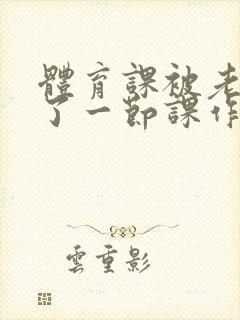 體育課被老
了一節課作
雲重影